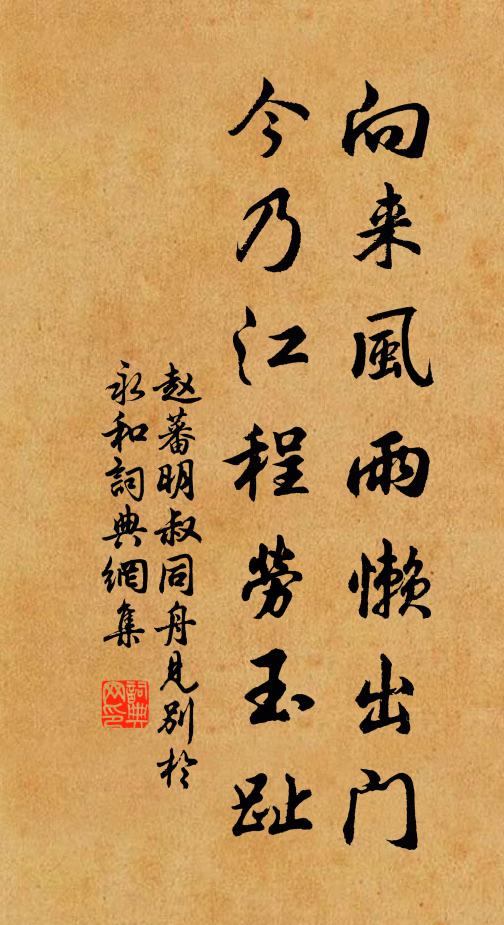 向来風雨懒出门
今乃江程劳玉趾
赵蕃明叔同舟見别於
永和詞典網集
詞典
网印